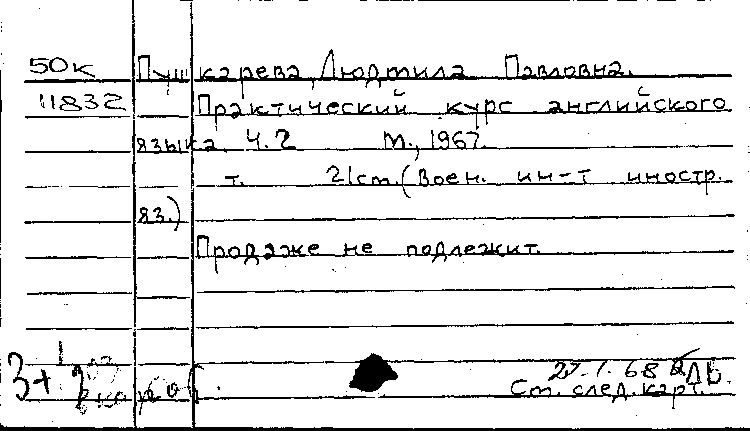 50к Пушкарева, Людмила Павловна.
11832 Практический курс английского
языка. Ч.2 М., 1967.
т. 21см. (Воен. ин-т иностр.
яз.)
Продаже не подлежит.
3+1
27.1.68 ДБ.
Ст. след. карт.